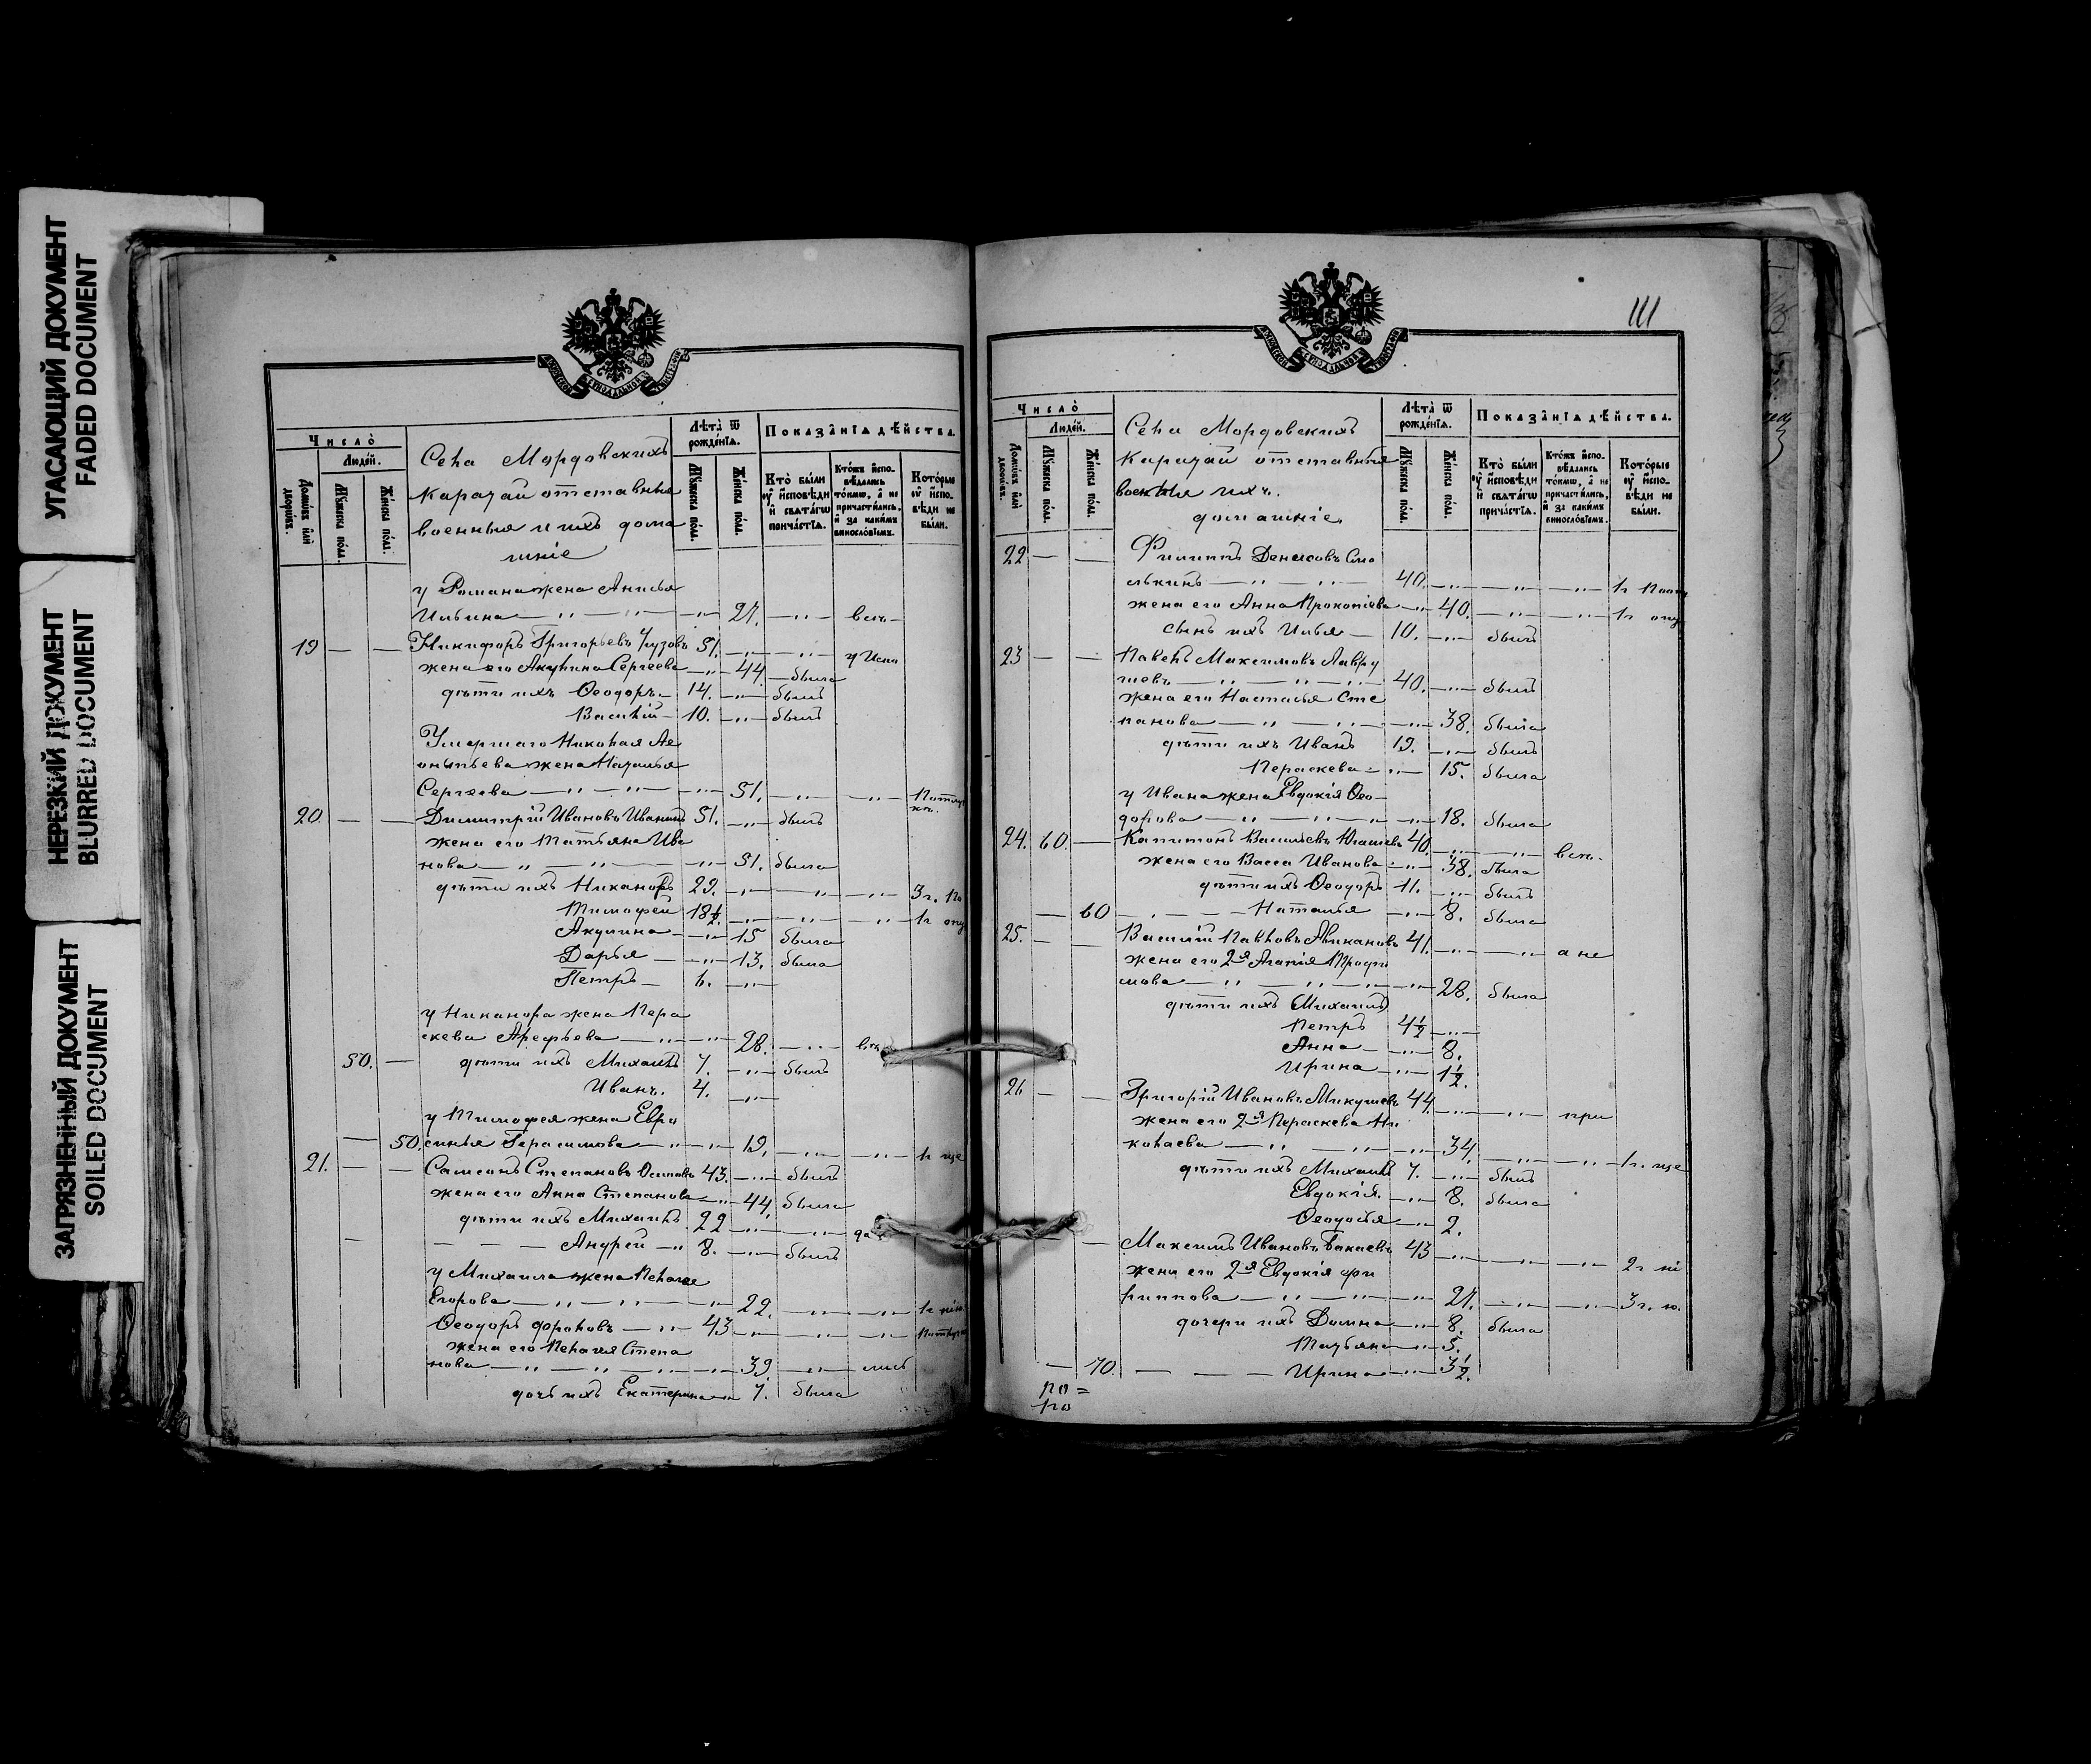 УГАСАЮЩИЙ ДОКУМЕНТ
FADED DOCUMENT
НЕРЕЗКИЙ ДОКУМЕНТ
BLURRED DOCUMENT
ЗАГРЯЗНЕННЫЙ ДОКУМЕНТ
SOILED DOCUMENT
Число
Людей.
Домѡвъ или дворѡвъ.
Мꙋжеска полꙋ.
Женска полꙋ.
Села Мордовскихъ
Каратай отставныя
военныя и ихъ дома
шніе
Лѣта ѿ рожденїѧ.
Мꙋжеска полꙋ.
Женска полꙋ.
Показанїѧ дѣйства.
Кто были оу исповѣди и свѧтагѡ причастїѧ.
Ктожъ исповѣдались токмѡ, а не причастились, и за какимъ винословїемъ.
Которые оу исповѣди не были.
у Романа жена Анисья
Ильина 27.
19 Никифоръ Григорьевъ 51. у Испо
жена его Акулина Сергеева 44. была
дѣти ихъ Ѳеодоръ 14. былъ
Василій 10. былъ
Умершаго Николая Ле
онтьева жена Наталья
Сергеева 51.
20. Димитрій Ивановъ Иванинъ 51. былъ
жена его Татьяна Ива
нова 51. была
дѣти ихъ Никаноръ 29. 3 г. По
Тимофей 18½. 1 г опу
Акулина 15 была
Дарья 13. была
Петръ 6.
у Никанора жена Пера
скева Арефьева 28.
50. дѣти ихъ Михаилъ 7. былъ
Иванъ. 4.
у Тимофея жена Евро
50. синья Герасимова 19. 1 г
21. Самсонъ Степановъ Осиповъ 43. былъ
жена его Анна Степанова 44. была
дѣти ихъ Михаилъ 22
Андрей 8. былъ
у Михаила жена Пелагея
Егорова 22.
Ѳеодоръ Фроловъ 43
жена его Пелагея Степа
нова 39.
дочь ихъ Екатерина 7. была
111
Число
Людей.
Домѡвъ или дворѡвъ.
Мꙋжеска полꙋ.
Женска полꙋ.
Села Мордовскихъ
Каратай отставныя
военныя ихъ.
домашніе.
Лѣта ѿ рожденїѧ.
Мꙋжеска полꙋ.
Женска полꙋ.
Показанїѧ дѣйства.
Кто были оу исповѣди и свѧтагѡ причастїѧ.
Ктожъ исповѣдались токмѡ, а не причастились, и за какимъ винословїемъ.
Которые оу исповѣди не были.
22 Филиппъ Денисовъ Смо
лькинъ 40. 1 г
жена его Анна Прокопіева 40. 1 г опу
сынъ ихъ Илья 10. былъ
23 Павелъ Максимовъ Лавру
шевъ 40. былъ
жена его Настасья Сте
панова 38. была
дѣти ихъ Иванъ 19. былъ
Пераскева 15. была
у Ивана жена Евдокія Ѳео
дорова 18. была
24. 60. Капитонъ Васильевъ Юлашевъ 40.
жена его Васса Иванова 38. была
дѣти ихъ Ѳеодоръ 11. былъ
60 Наталья 8. была
25. Василій Павловъ 41. а не
жена его 2я Агапія Трофи
мова 28. была
дѣти ихъ Михаилъ
Петръ 4½
Анна 8.
Ирина 1½.
26 Григорій Ивановъ Микушевъ 44. при
жена его 2я Пераскева Ни
колаева 34. 1 г.
дѣти ихъ Михаилъ 7. былъ
Евдокія. 8. была
Ѳеодосья 2.
Максимъ Ивановъ Бакаевъ 43 2 г
жена его 2я Евдокія Фи
липпова 27. 3 г.
дочери ихъ Домна 8. была
Татьяна 5.
70. Ирина 3½.